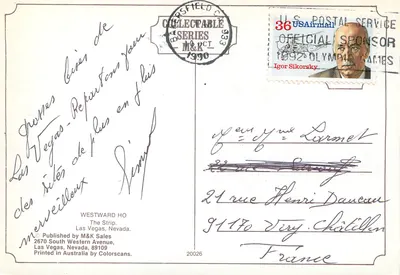 COLLECTABLE
SERIES
M&K
BAKERSFIELD CA
933
OCT
1990
36 USAirmail
Igor Sikorsky
U.S. POSTAL SERVICE
OFFICIAL SPONSOR
1992 OLYMPIC GAMES
grosses bises de
Las Vegas. Repartons pour
des sites de plus en plus
merveilleux
Mr et Mme Larmet
21 rue Henri Dunean
91170 Viry-Châtillon
France
WESTWARD HO
The Strip.
Las Vegas, Nevada.
Published by M&K Sales
2670 South Western Avenue,
Las Vegas, Nevada, 89109
Printed in Australia by Colorscans.
20026